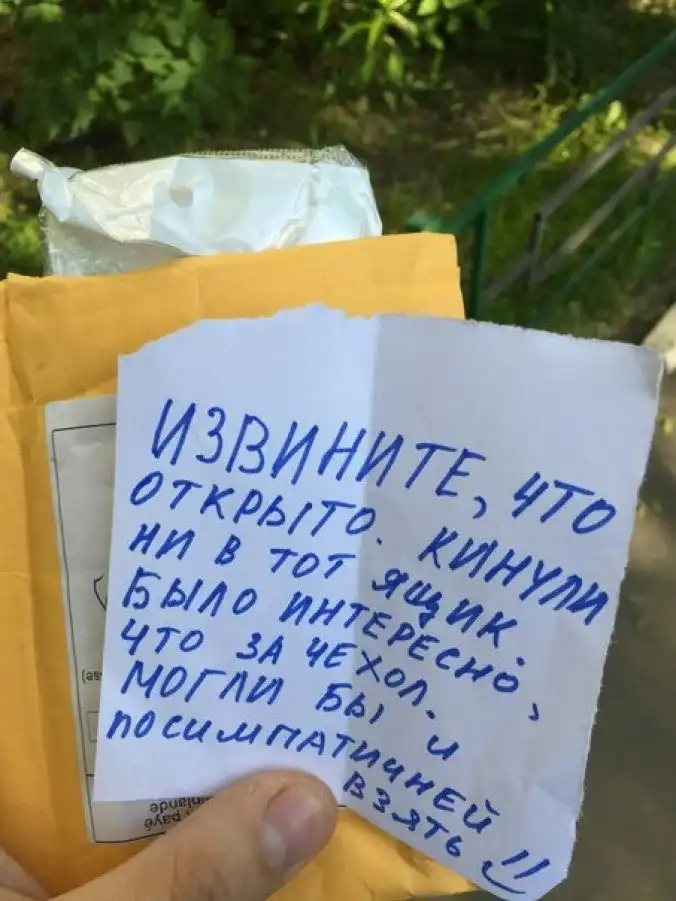 ИЗВИНИТЕ, ЧТО
ОТКРЫТО. КИНУЛИ
НИ В ТОТ ЯЩИК.
БЫЛО ИНТЕРЕСНО,
ЧТО ЗА ЧЕХОЛ.
МОГЛИ БЫ И
ПОСИМПАТИЧНЕЙ
ВЗЯТЬ
payé